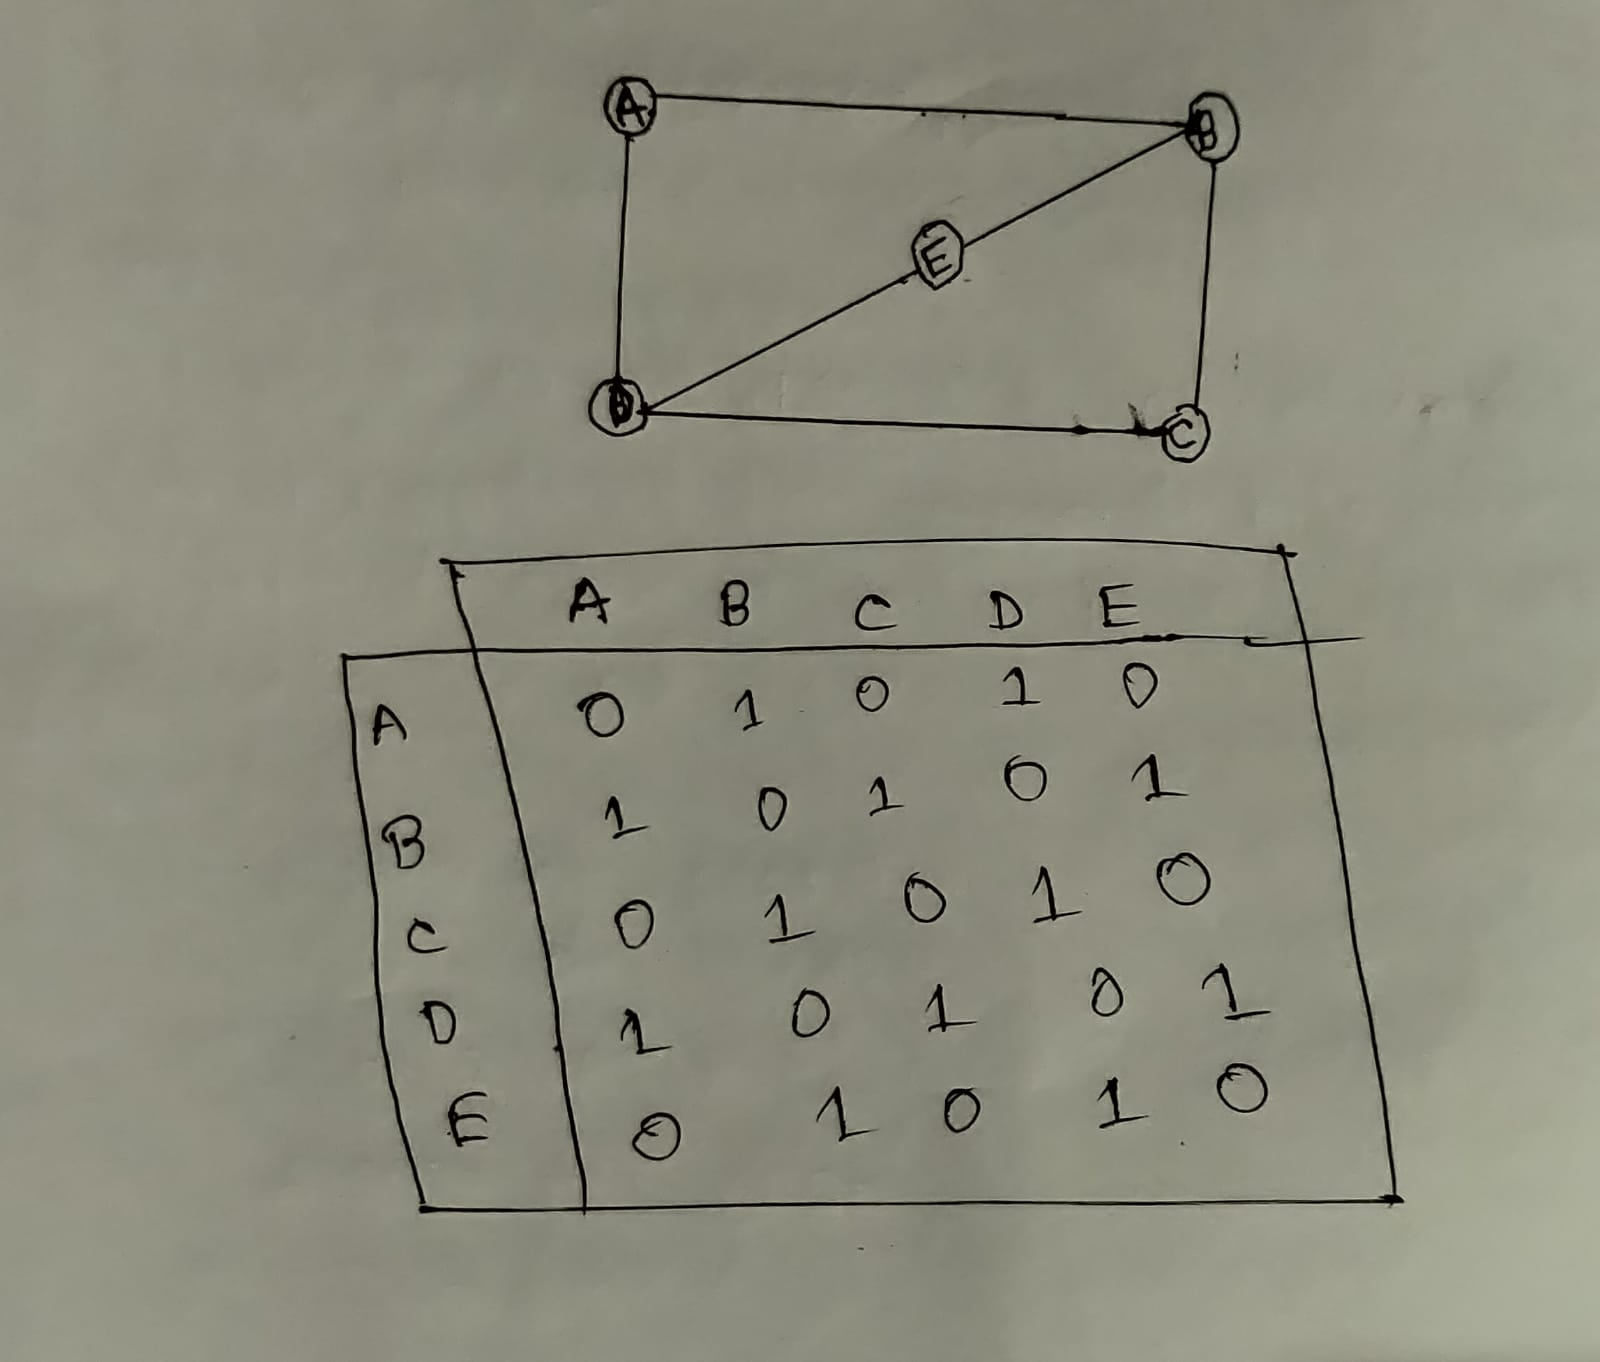 A B
E
D C
A B C D E
A 0 1 0 1 0
B 1 0 1 0 1
C 0 1 0 1 0
D 1 0 1 0 1
E 0 1 0 1 0